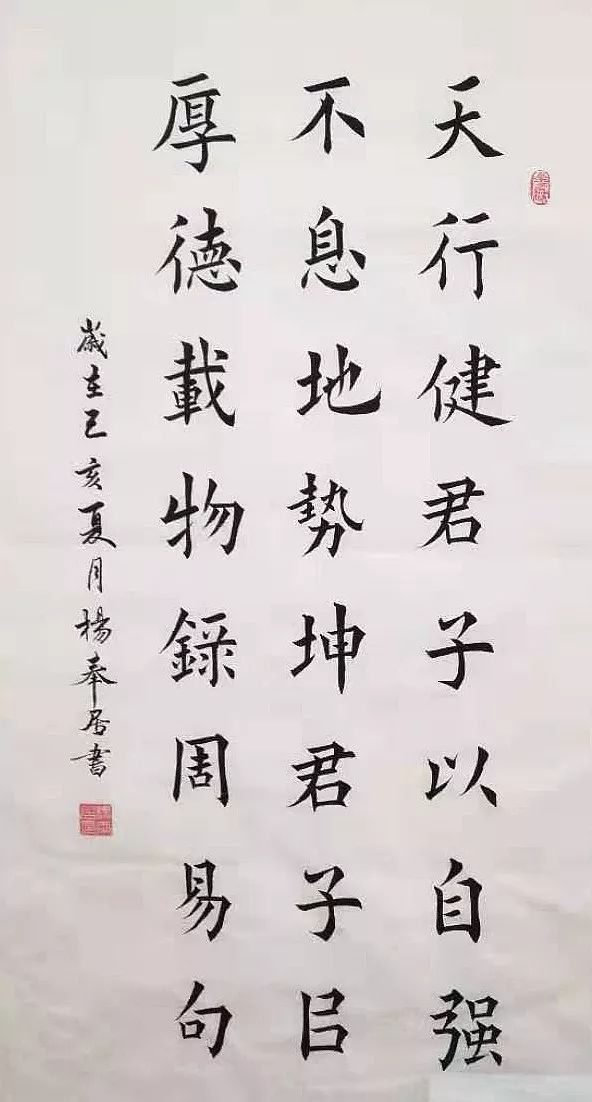 天行健君子以自强
不息地勢坤君子㠯
厚德載物録周易句
歲在己亥夏月楊奉居書